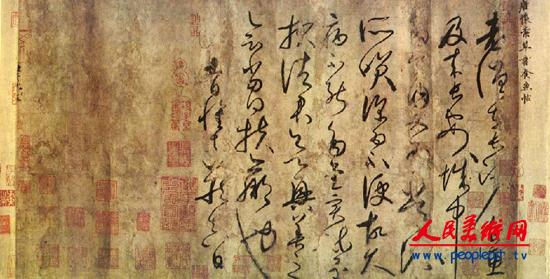 唐懷素草書食魚帖
老僧在長沙食魚
及來長安城中
多食肉又為常流
所笑深為不便故久
病不能多書實疏還
報諸君欲興善之
會當得扶羸也
九日懷素藏真白
人民美术网
www.peopleart.tv